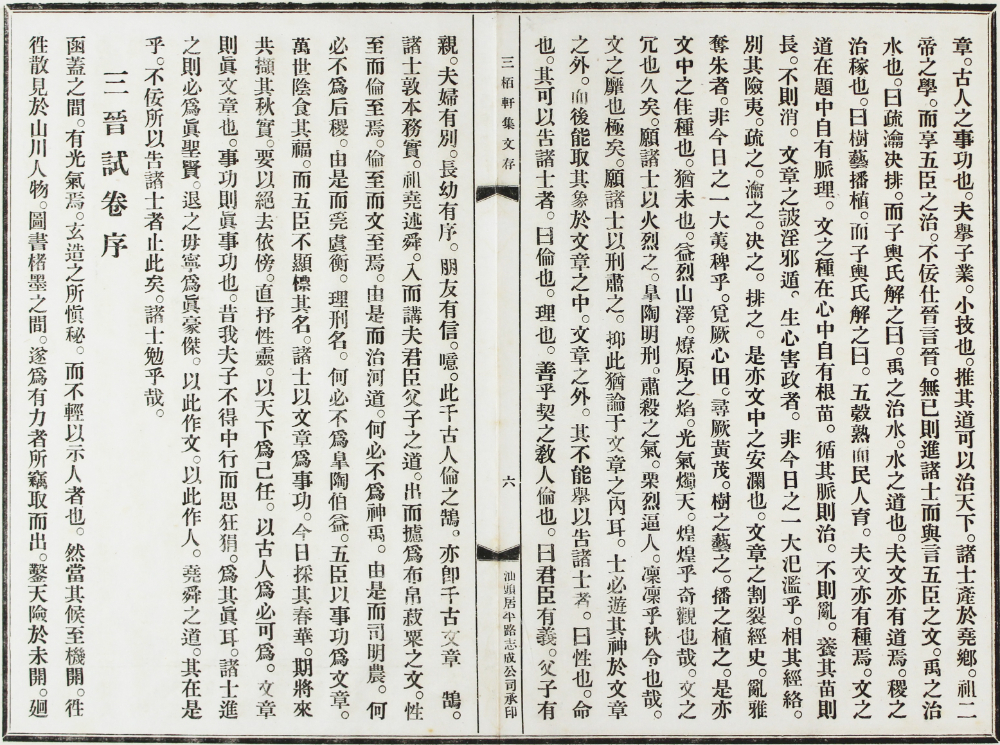 章。古人之事功也。夫擧子業。小技也。推其道可以治天下。諸士產於堯鄉。祖二
帝之學。而享五臣之治。不佞仕晉言晉。無已則進諸士而與言五臣之文。禹之治
水也。曰疏瀹決排。而子輿氏解之曰。禹之治水。水之道也。夫文亦有道焉。稷之
治稼也。曰樹藝播植。而子輿氏解之曰。五穀熟而民人育。夫文亦有種焉。文之
道在題中自有脈理。文之種在心中自有根苗。循其脈則治。不則亂。養其苗則
長。不則消。文章之詖淫邪遁。生心害政者。非今日之一大氾濫乎。相其經絡。
別其險夷。疏之。瀹之。決之。排之。是亦文中之安瀾也。文章之割裂經史。亂雅
奪朱者。非今日之一大荑稗乎。覓厥心田。尋厥黃茂。樹之藝之。播之植之。是亦
文中之佳種也。猶未也。益烈山澤。燎原之焰。光氣燭天。煌煌乎奇觀也哉。文之
冗也久矣。願諸士以火烈之。臯陶明刑。肅殺之氣。栗烈逼人。凜凜乎秋令也哉。
文之靡也極矣。願諸士以刑肅之。抑此猶論于文章之內耳。士必遊其神於文章
之外。而後能取其象於文章之中。文章之外。其不能擧以告諸士者。曰性也。命
也。其可以告諸士者。曰倫也。理也。善乎契之敎人倫也。曰君臣有義。父子有
三栢軒集文存
六
汕頭居平路志成公司承印
親。夫婦有別。長幼有序。朋友有信。噫。此千古人倫之鵠。亦卽千古文章 鵠。
諸士敦本務實。祖堯述舜。入而講夫君臣父子之道。出而攄爲布帛菽粟之文。性
至而倫至焉。倫至而文至焉。由是而治河道。何必不爲神禹。由是而司明農。何
必不爲后稷。由是而堯虞衡。理刑名。何必不爲臯陶伯益。五臣以事功爲文章。
萬世陰食其福。而五臣不顯標其名。諸士以文章爲事功。今日採其春華。期將來
共擷其秋實。要以絕去依傍。直抒性靈。以天下爲己任。以古人爲必可爲。文章
則眞文章也。事功則眞事功也。昔我夫子不得中行而思狂狷。爲其眞耳。諸士進
之則必爲眞聖賢。退之毋寧爲眞豪傑。以此作文。以此作人。堯舜之道。其在是
乎。不佞所以告諸士者止此矣。諸士勉乎哉。
三晉試卷序
函蓋之間。有光氣焉。玄造之所愼秘。而不輕以示人者也。然當其候至機開。徃
徃散見於山川人物。圖書楮墨之間。遂爲有力者所竊取而出。鑿天險於未開。廻